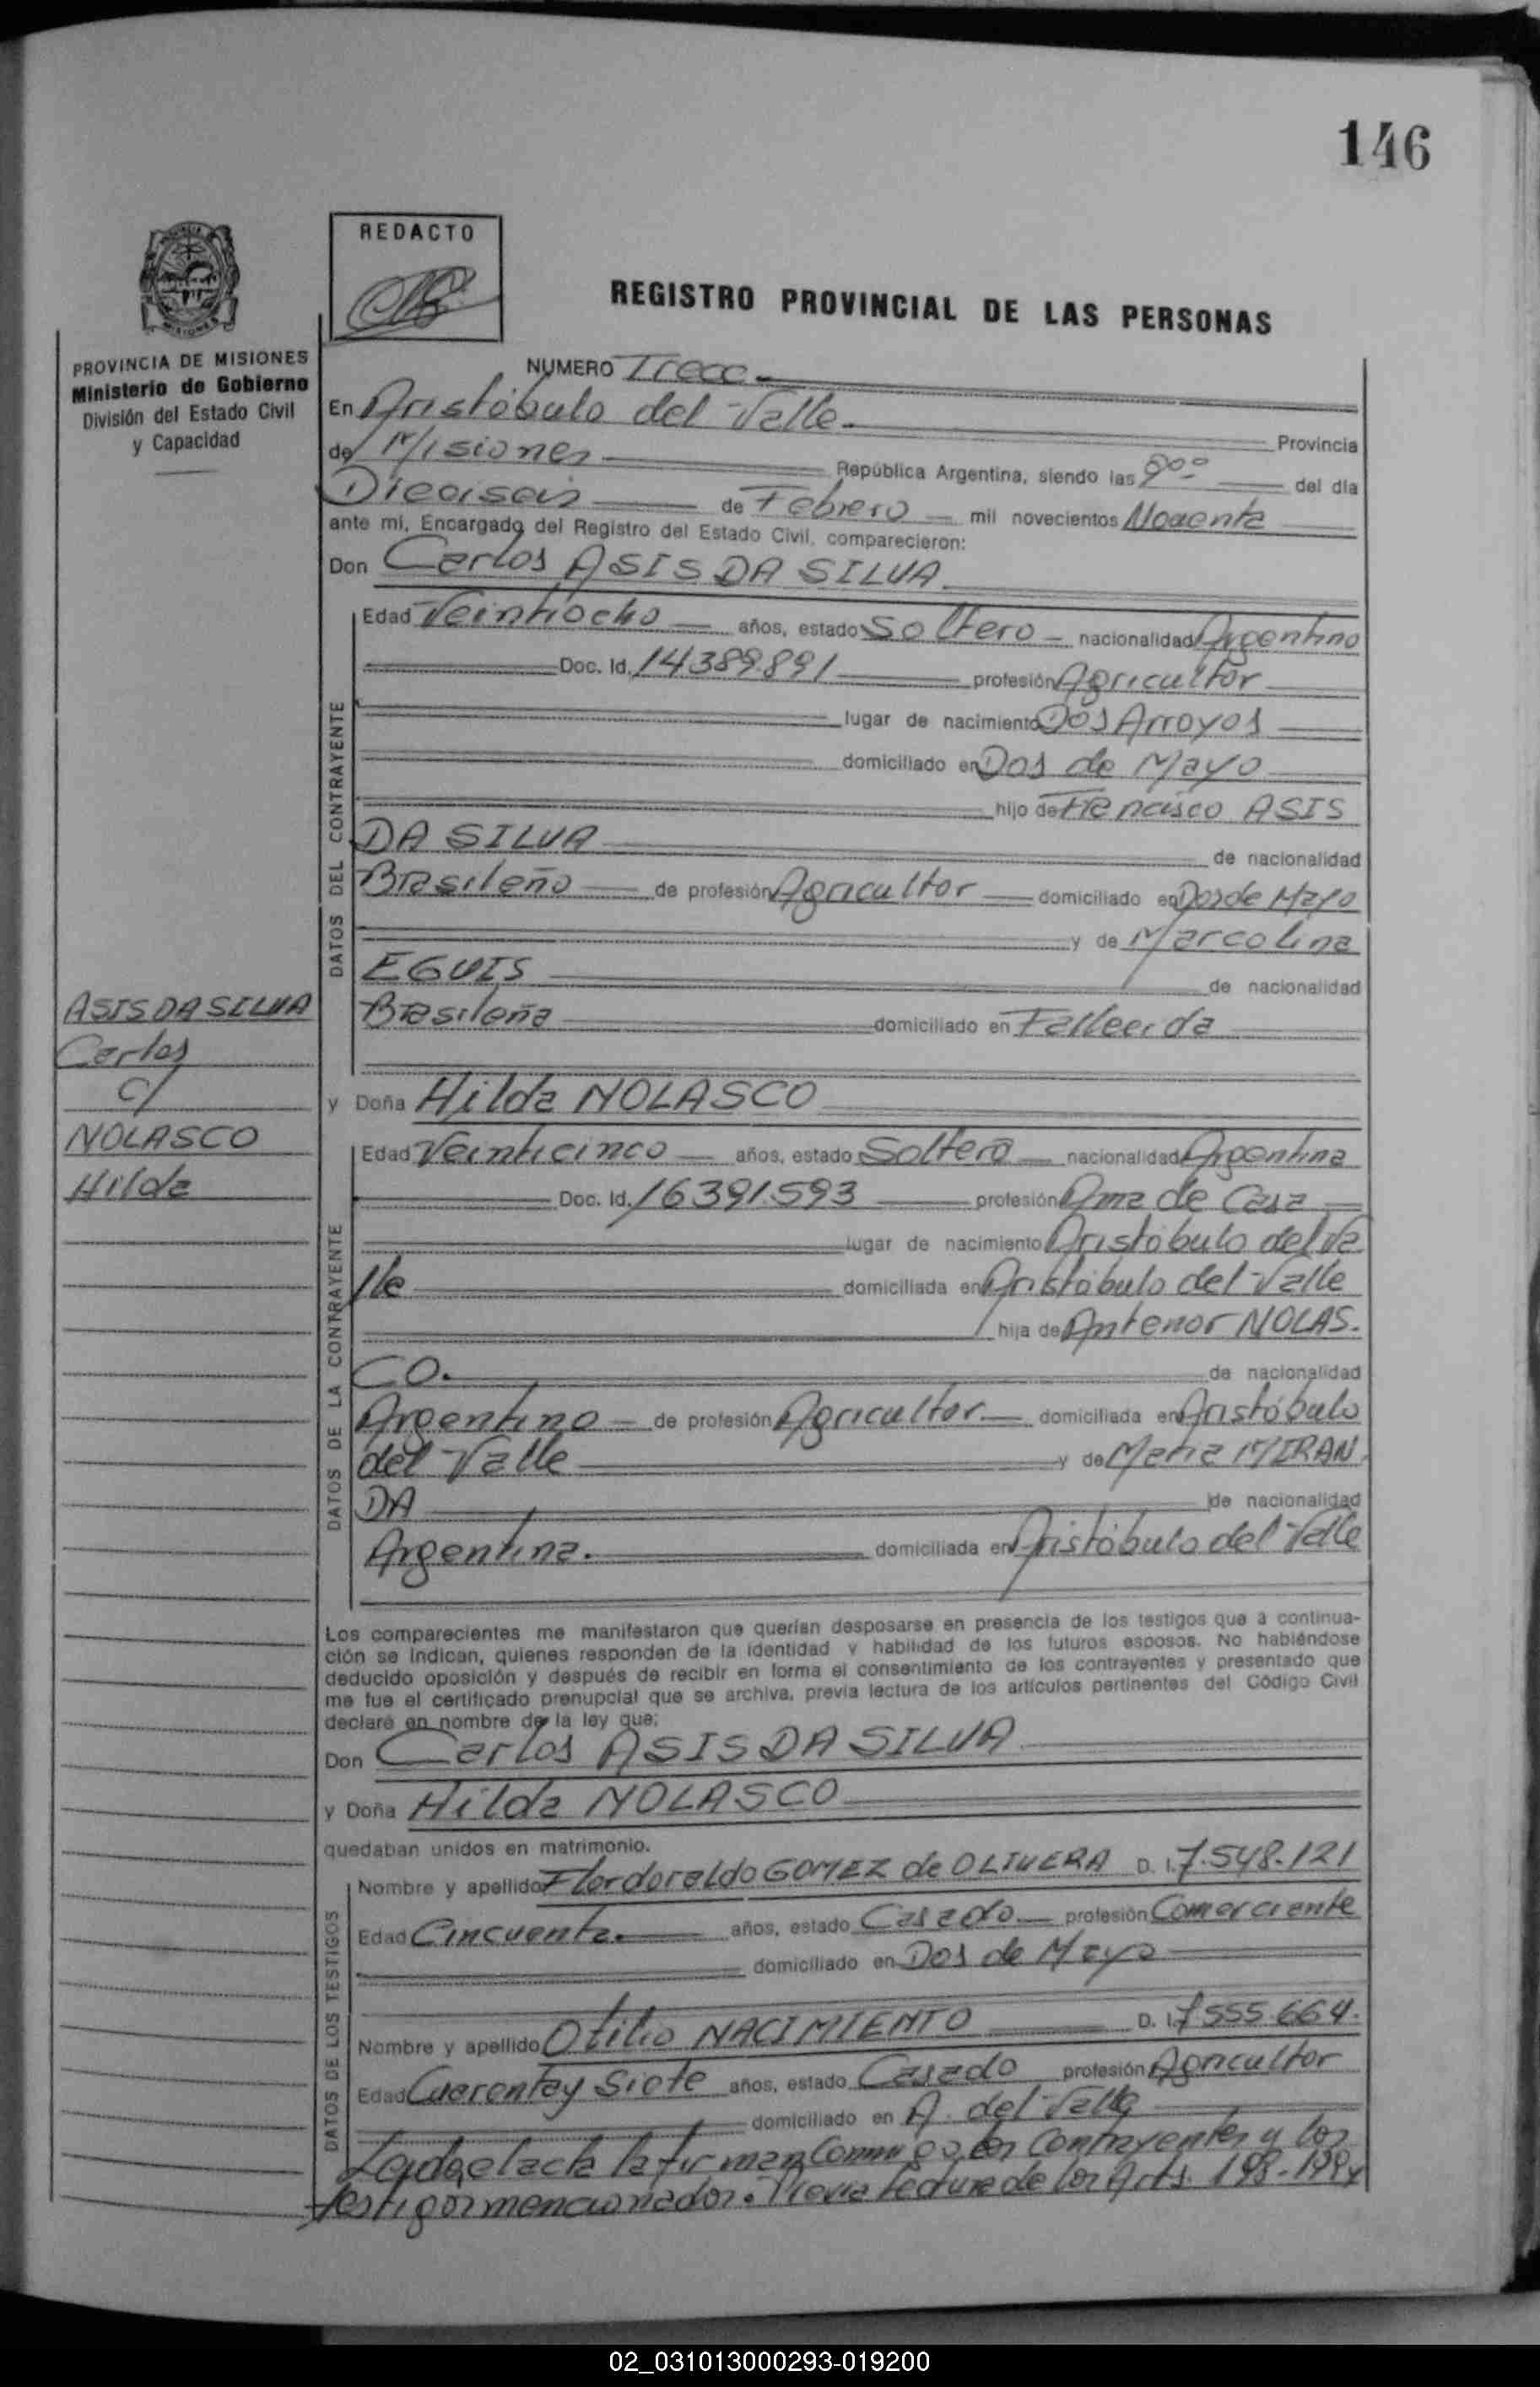 146
REDACTO
REGISTRO PROVINCIAL DE LAS PERSONAS
PROVINCIA DE MISIONES
Ministerio de Gobierno
División del Estado Civil
y Capacidad
NUMERO Trece
En Aristóbulo del Valle Provincia
de Misiones República Argentina, siendo las del día
Dieciseis de Febrero mil novecientos Noventa
ante mí, Encargado del Registro del Estado Civil, comparecieron:
Don Carlos ASIS DA SILVA
DATOS DEL CONTRAYENTE
Edad Veintiocho años, estado Soltero nacionalidad Argentino
Doc. Id. 14.389.891 profesión Agricultor
lugar de nacimiento Dos Arroyos
domiciliado en Dos de Mayo
hijo de Francisco ASIS
DA SILVA de nacionalidad
Brasileño de profesión Agricultor domiciliado en Dos de Mayo
y de Marcolina
EGUIS de nacionalidad
Brasileña domiciliado en Fallecida
ASIS DA SILVA
Carlos
c/
NOLASCO
Hilda
y Doña Hilda NOLASCO
DATOS DE LA CONTRAYENTE
Edad Veinticinco años, estado Soltera nacionalidad Argentina
Doc. Id. 16.391.593 profesión Ama de Casa
lugar de nacimiento Aristóbulo del Va
lle domiciliada en Aristóbulo del Valle
hija de Antenor NOLAS.
CO. de nacionalidad
Argentino de profesión Agricultor domiciliada en Aristóbulo
del Valle y de Maria MIRAN
DA de nacionalidad
Argentina. domiciliada en Aristóbulo del Valle
Los comparecientes me manifestaron que querían desposarse en presencia de los testigos que a continua-
ción se indican, quienes responden de la identidad y habilidad de los futuros esposos. No habiéndose
deducido oposición y después de recibir en forma el consentimiento de los contrayentes y presentado que
me fue el certificado prenupcial que se archiva, previa lectura de los artículos pertinentes del Código Civil
declaré en nombre de la ley que:
Don Carlos ASIS DA SILVA
y Doña Hilda NOLASCO
quedaban unidos en matrimonio.
DATOS DE LOS TESTIGOS
Nombre y apellido Flordoraldo GOMEZ de OLIVERA D. I. 7.548.121
Edad Cincuenta. años, estado Casado profesión Comerciante
domiciliado en Dos de Mayo
Nombre y apellido Otilio NACIMIENTO D. I. 7.555.664.
Edad Cuarenta y Siete años, estado Casado profesión Agricultor
domiciliado en A. del Valle
Leida el acta la firman Conmigo, los Contrayentes y los
testigos mencionados. Previa Lectura de los Arts. 198-199 y
02_031013000293-019200